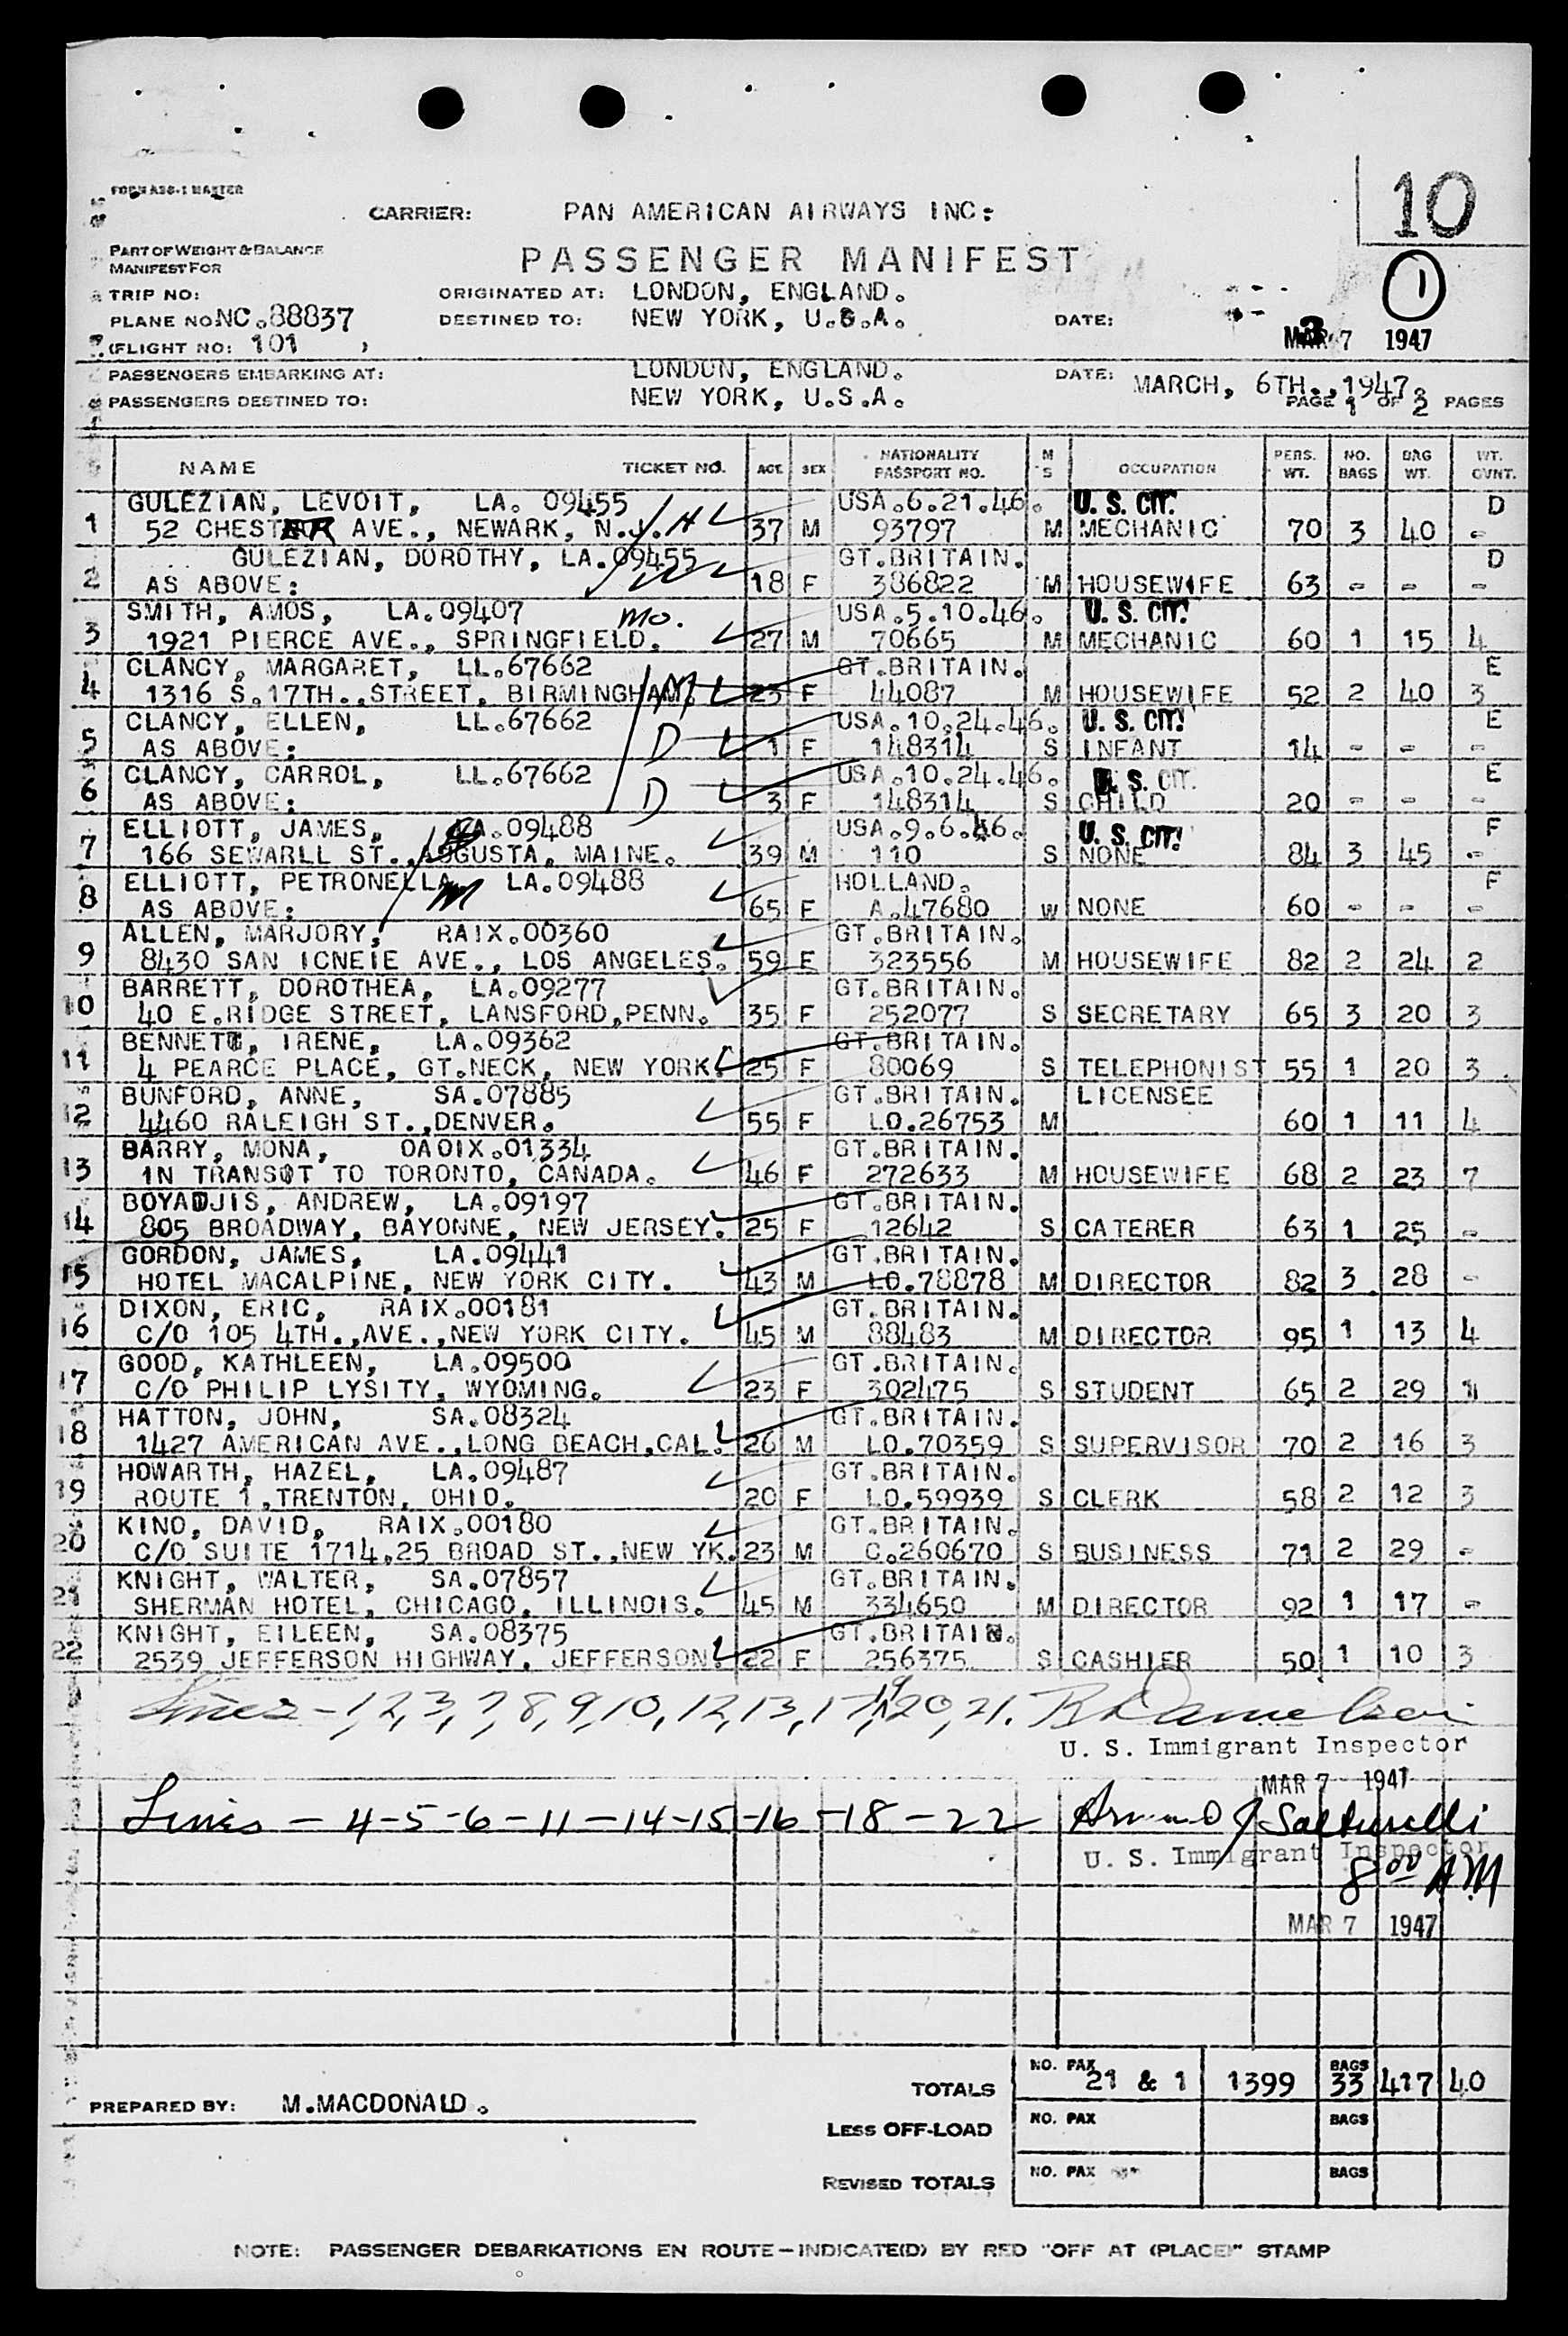 FORM A36-1 MASTER
10
CARRIER: PAN AMERICAN AIRWAYS INC:
PART OF WEIGHT & BALANCE
MANIFEST FOR
PASSENGER MANIFEST
1
TRIP NO: ORIGINATED AT: LONDON, ENGLAND.
PLANE NO: NC.88837 DESTINED TO: NEW YORK, U.S.A. DATE: MAR 7 1947
(FLIGHT NO: 101 )
PASSENGERS EMBARKING AT: LONDON, ENGLAND. DATE: MARCH, 6TH.,1947.
PASSENGERS DESTINED TO: NEW YORK, U.S.A. PAGE 1 OF 2 PAGES
NAME TICKET NO. AGE SEX NATIONALITY PASSPORT NO. M S OCCUPATION PERS. WT. NO. BAGS BAG WT. WT. OVNT.
GULEZIAN, LEVOIT, LA. 09455 USA.6.21.46. U. S. CIT. D
1 52 CHESTER AVE., NEWARK, N.J. H 37 M 93797 M MECHANIC 70 3 40 -
GULEZIAN, DOROTHY, LA.09455 GT.BRITAIN. D
2 AS ABOVE: W 18 F 386822 M HOUSEWIFE 63 - - -
SMITH, AMOS, LA.09407 Mo. USA.5.10.46. U. S. CIT.
3 1921 PIERCE AVE., SPRINGFIELD. 27 M 70665 M MECHANIC 60 1 15 4
CLANCY, MARGARET, LL.67662 GT.BRITAIN. E
4 1316 S.17TH.,STREET, BIRMINGHAM. M 23 F 44087 M HOUSEWIFE 52 2 40 3
CLANCY, ELLEN, LL.67662 USA.10.24.46. U. S. CIT. E
5 AS ABOVE: D 1 F 148314 S INFANT 14 - - -
CLANCY, CARROL, LL.67662 USA.10.24.46. U. S. CIT. E
6 AS ABOVE: D 3 F 148314 S CHILD 20 - - -
ELLIOTT, JAMES, LA.09488 USA.9.6.46. U. S. CIT. F
7 166 SEWARLL ST.,AUGUSTA, MAINE. 39 M 110 S NONE 84 3 45 -
ELLIOTT, PETRONELLA, LA.09488 HOLLAND. F
8 AS ABOVE: M 65 F A.47680 W NONE 60 - - -
ALLEN, MARJORY, RAIX.00360 GT.BRITAIN.
9 8430 SAN ICNEIE AVE., LOS ANGELES. 59 F 323556 M HOUSEWIFE 82 2 24 2
BARRETT, DOROTHEA, LA.09277 GT.BRITAIN.
10 40 E.RIDGE STREET, LANSFORD,PENN. 35 F 252077 S SECRETARY 65 3 20 3
BENNETT, IRENE, LA.09362 GT.BRITAIN.
11 4 PEARCE PLACE, GT.NECK, NEW YORK. 25 F 80069 S TELEPHONIST 55 1 20 3
BUNFORD, ANNE, SA.07885 GT.BRITAIN. LICENSEE
12 4460 RALEIGH ST.,DENVER. 55 F LO.26753 M 60 1 11 4
BARRY, MONA, OAOIX.01334 GT.BRITAIN.
13 IN TRANSIT TO TORONTO, CANADA. 46 F 272633 M HOUSEWIFE 68 2 23 7
BOYADJIS, ANDREW, LA.09197 GT.BRITAIN.
14 805 BROADWAY, BAYONNE, NEW JERSEY. 25 F 12642 S CATERER 63 1 25 -
GORDON, JAMES, LA.09441 GT.BRITAIN.
15 HOTEL MACALPINE, NEW YORK CITY. 43 M LO.78878 M DIRECTOR 82 3 28 -
DIXON, ERIC, RAIX.00181 GT.BRITAIN.
16 C/O 105 4TH.,AVE.,NEW YORK CITY. 45 M 88483 M DIRECTOR 95 1 13 4
GOOD, KATHLEEN, LA.09500 GT.BRITAIN.
17 C/O PHILIP LYSITY, WYOMING. 23 F 302475 S STUDENT 65 2 29 1
HATTON, JOHN, SA.08324 GT.BRITAIN.
18 1427 AMERICAN AVE.,LONG BEACH,CAL. 26 M LO.70359 S SUPERVISOR 70 2 16 3
HOWARTH, HAZEL, LA.09487 GT.BRITAIN.
19 ROUTE 1,TRENTON, OHIO. 20 F LO.59939 S CLERK 58 2 12 3
KINO, DAVID, RAIX.00180 GT.BRITAIN.
20 C/O SUITE 1714.25 BROAD ST.,NEW YK. 23 M C.260670 S BUSINESS 71 2 29 -
KNIGHT, WALTER, SA.07857 GT.BRITAIN.
21 SHERMAN HOTEL, CHICAGO, ILLINOIS. 45 M 334650 M DIRECTOR 92 1 17 -
KNIGHT, EILEEN, SA.08375 GT.BRITAIN.
22 2539 JEFFERSON HIGHWAY, JEFFERSON. 22 F 256375 S CASHIER 50 1 10 3
Lines - 1, 2, 3, 7, 8, 9, 10, 12, 13, 17, 19, 20, 21.
U. S. Immigrant Inspector
MAR 7 1947
Lines - 4-5-6-11-14-15-16-18-22
U. S. Immigrant Inspector
8 00 AM
MAR 7 1947
TOTALS NO. PAX 21 & 1 1399 BAGS 33 417 40
PREPARED BY: M.MACDONALD.
LESS OFF-LOAD NO. PAX BAGS
REVISED TOTALS NO. PAX BAGS
NOTE: PASSENGER DEBARKATIONS EN ROUTE—INDICATE(D) BY RED "OFF AT (PLACE)" STAMP